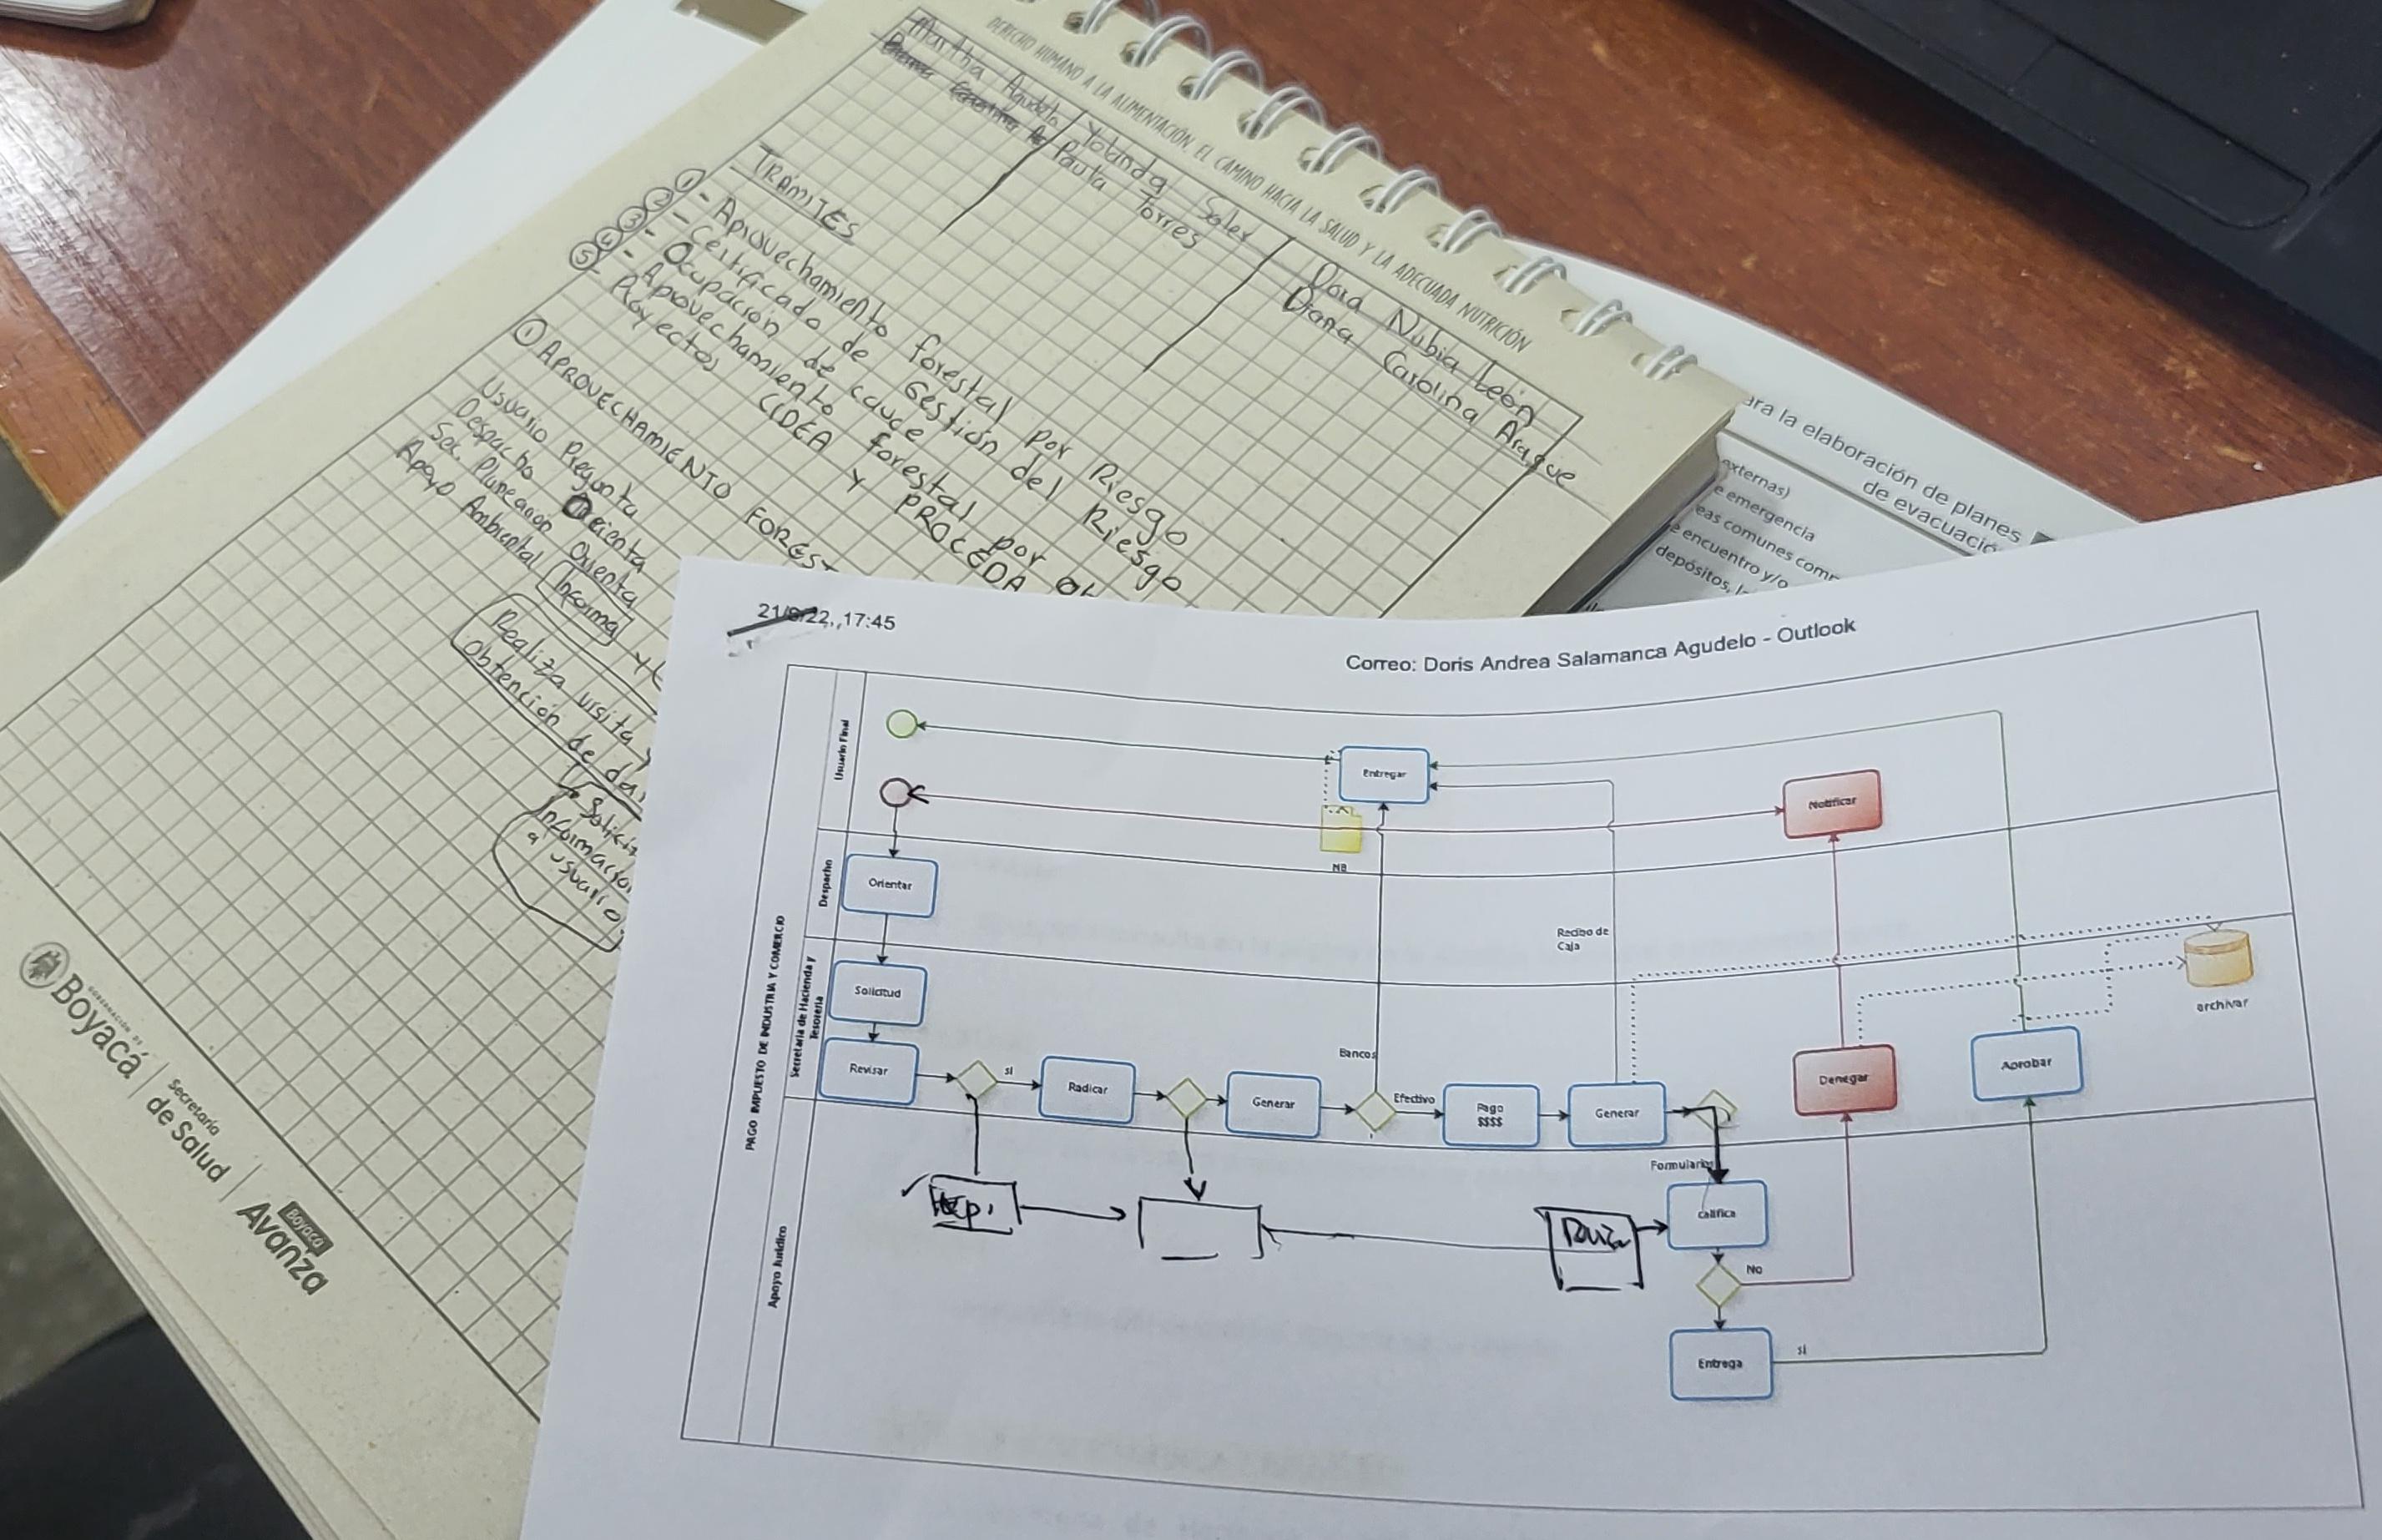 DERECHO HUMANO A LA ALIMENTACIÓN EL CAMINO HACIA LA SALUD Y LA ADECUADA NUTRICIÓN
Martha Agudelo
Yolanda Soler
Paula Torres
Dora Nubia León
Diana Carolina Araque
TRÁMITES
① - Aprovechamiento forestal por Riesgo
② - Certificado de Gestión del Riesgo
③ - Ocupación de cauce
④ - Aprovechamiento forestal por
⑤ - Proyectos CIDEA Y PROCEDA
① APROVECHAMIENTO FOREST
Usuario Pregunta
Despacho Orienta
Sec. Planeación Orienta
Apoyo Ambiental Informa y
Realiza visita y
Obtención de
Información
a usuario
GOBERNACIÓN DE
Boyacá
Secretaría
de Salud
Boyacá
Avanza
ara la elaboración de planes
de evacuació
externas)
e emergencia
eas comunes com
e encuentro y/o
depósitos,
22, 17:45
Correo: Doris Andrea Salamanca Agudelo - Outlook
PAGO IMPUESTO DE INDUSTRIA Y COMERCIO
Usuario Final
Entregar
Notificar
NB
Despacho
Orientar
Recibo de
Caja
Secretaria de Hacienda Y
Tesoreria
Solicitud
archivar
Bancos
Revisar
si
Radicar
Generar
Efectivo
Pago
$$$$
Generar
Denegar
Aprobar
Formulario
Apoyo Juridico
califica
No
Entrega
si